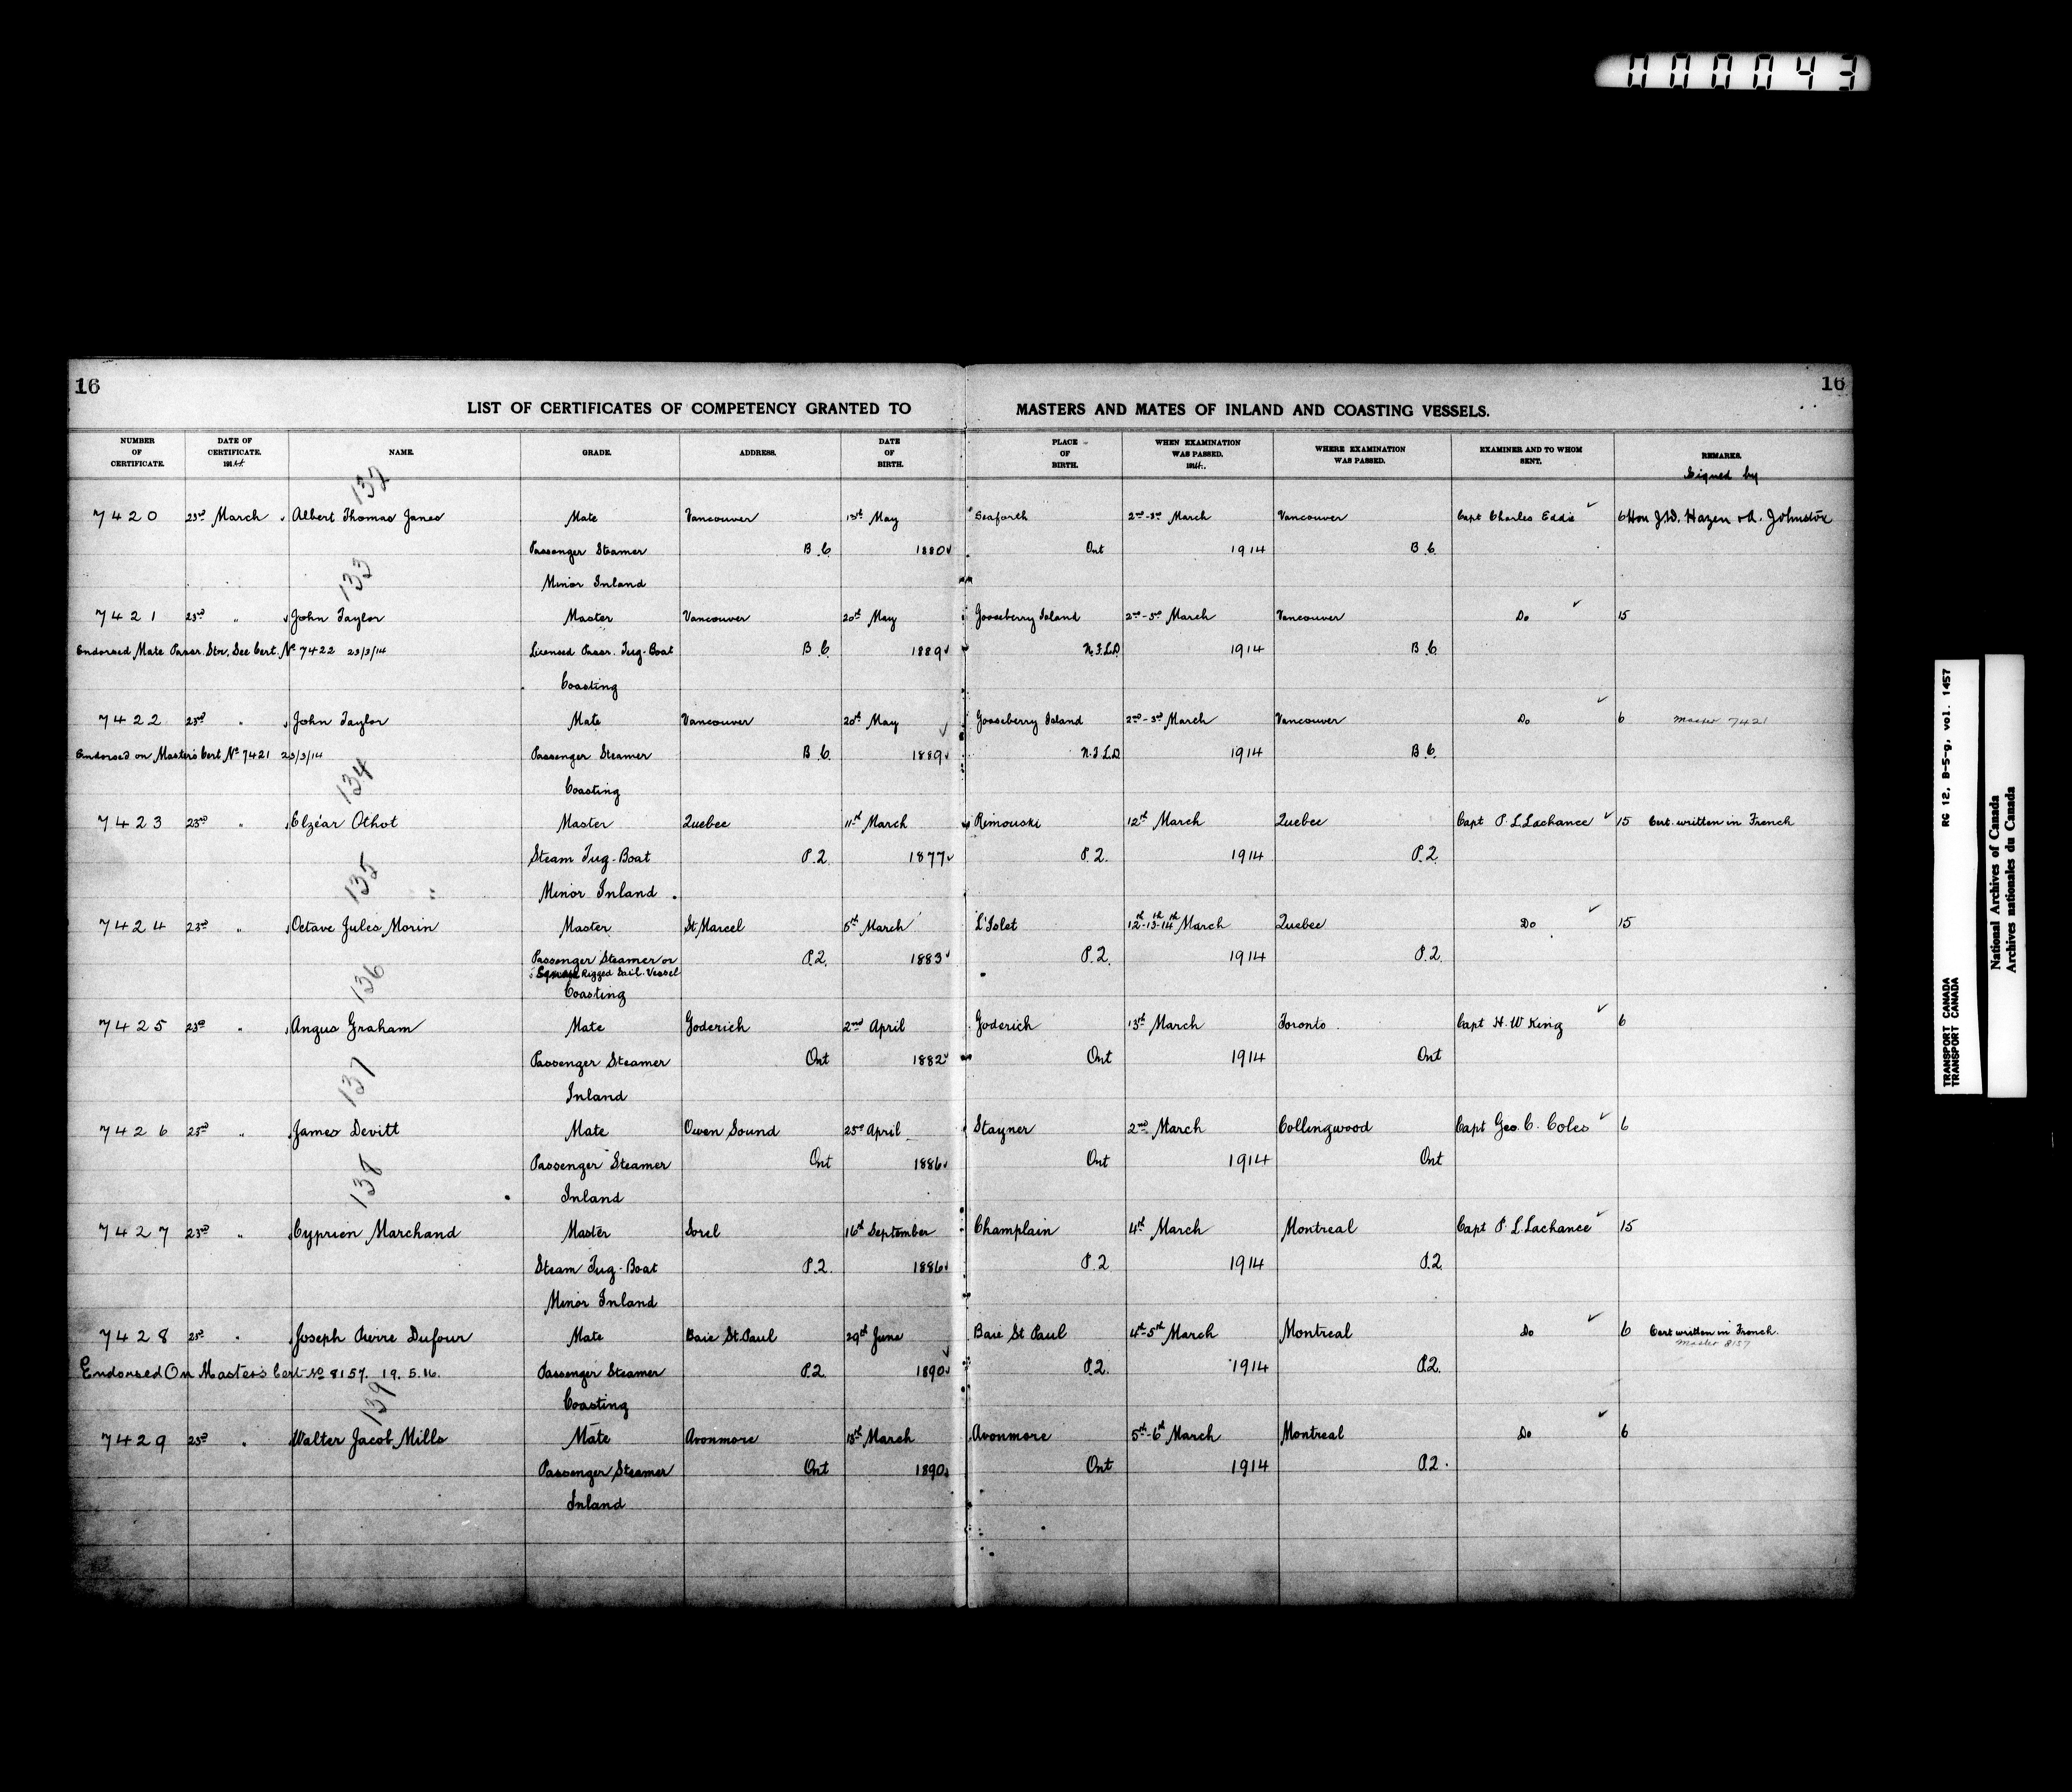 000043
16
16
LIST OF CERTIFICATES OF COMPETENCY GRANTED TO MASTERS AND MATES OF INLAND AND COASTING VESSELS.
NUMBER OF CERTIFICATE. DATE OF CERTIFICATE. 1914. NAME. GRADE. ADDRESS. DATE OF BIRTH. PLACE OF BIRTH. WHEN EXAMINATION WAS PASSED. 1914. WHERE EXAMINATION WAS PASSED. EXAMINER AND TO WHOM SENT. REMARKS.
Signed by
132
7420 23rd March Albert Thomas Janes Mate Vancouver 15th May Seaforth 2nd-3rd March Vancouver Capt Charles Eddie 6 Hon J.D. Hazen & A. Johnston
Passenger Steamer B.C. 1880 Ont 1914 B.C.
133
Minor Inland
7421 23rd " John Taylor Master Vancouver 20th May Gooseberry Island 2nd-5th March Vancouver Do 15
Endorsed Mate Passr. Str. See Cert. No 7422 23/3/14 Licensed Passr. Tug-Boat B.C. 1889 N.F.L.D. 1914 B.C.
Coasting
7422 23rd " John Taylor Mate Vancouver 20th May Gooseberry Island 2nd-3rd March Vancouver Do 6 Master 7421
Endorsed on Master's Cert No 7421 23/3/14 Passenger Steamer B.C. 1889 N.F.L.D. 1914 B.C.
134
Coasting
7423 23rd " Elzéar Othot Master Quebec 11th March Rimouski 12th March Quebec Capt P. L. Lachance 15 Cert. written in French
Steam Tug-Boat P.Q. 1877 P.Q. 1914 P.Q.
135
Minor Inland
7424 23rd " Octave Jules Morin Master St Marcel 5th March L'Islet 12th-13th-14th March Quebec Do 15
Passenger Steamer or P.Q. 1883 P.Q. 1914 P.Q.
Rigged Sail. Vessel
136
Coasting
7425 23rd " Angus Graham Mate Goderich 2nd April Goderich 13th March Toronto Capt H. W King 6
Passenger Steamer Ont 1882 Ont 1914 Ont
137
Inland
7426 23rd " James Devitt Mate Owen Sound 25th April Stayner 2nd March Collingwood Capt Geo. C. Coles 6
Passenger Steamer Ont 1886 Ont 1914 Ont
138
Inland
7427 23rd " Cyprien Marchand Master Sorel 16th September Champlain 4th March Montreal Capt P. L. Lachance 15
Steam Tug-Boat P.Q. 1886 P.Q. 1914 P.Q.
Minor Inland
7428 23rd " Joseph Pierre Dufour Mate Baie St. Paul 29th June Baie St Paul 4th-5th March Montreal Do 6 Cert written in French.
Master 8157
Endorsed On Master's Cert No 8157. 19.5.16. Passenger Steamer P.Q. 1890 P.Q. 1914 P.Q.
139
Coasting
7429 23rd " Walter Jacob Mills Mate Avonmore 18th March Avonmore 5th-6th March Montreal Do 6
Passenger Steamer Ont 1890 Ont 1914 P.Q.
Inland
RG 12, B-5-g, vol. 1457
TRANSPORT CANADA
TRANSPORT CANADA
National Archives of Canada
Archives nationales du Canada